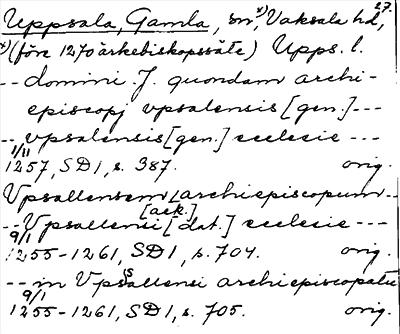 Uppsala, Gamla, sn,x) Vaksala hd, 27.
x) (före 1270 ärkebiskopssäte) Upps. l.
-- domini J. quondam archi-
episcopj vpsalensis [gen.] ---
-- vpsalensis [gen.] ecclesie ---
1/11
1257, SD 1, s. 387. orig.
Vpsallensem [archiepiscopum --
[ack.]
-- Vpsallensi [dat.] ecclesie ---
9/1
1255-1261, SD 1, s. 704. orig.
-- in Vpsallensi archiepiscopatu
9/1
1255-1261, SD 1, s. 705. orig.